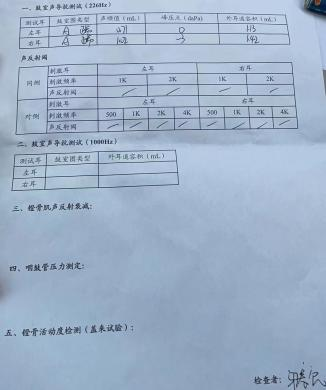 一、鼓室声导抗测试(226Hz)
测试耳 鼓室图类型 声顺值(mL) 峰压点(daPa) 外耳道容积(mL)
左耳 A 0
右耳 A -3
声反射阈
同侧 刺激耳 左耳 右耳
刺激频率 1K 2K 1K 2K
声反射阈 / / / /
对侧 刺激耳 左耳 右耳
刺激频率 500 1K 2K 4K 500 1K 2K 4K
声反射阈 / / / / / / / /
二、鼓室声导抗测试(1000Hz)
测试耳 鼓室图类型 外耳道容积(mL)
左耳
右耳
三、镫骨肌声反射衰减:
四、咽鼓管压力测定:
五、镫骨活动度检测(盖来试验):
检查者: